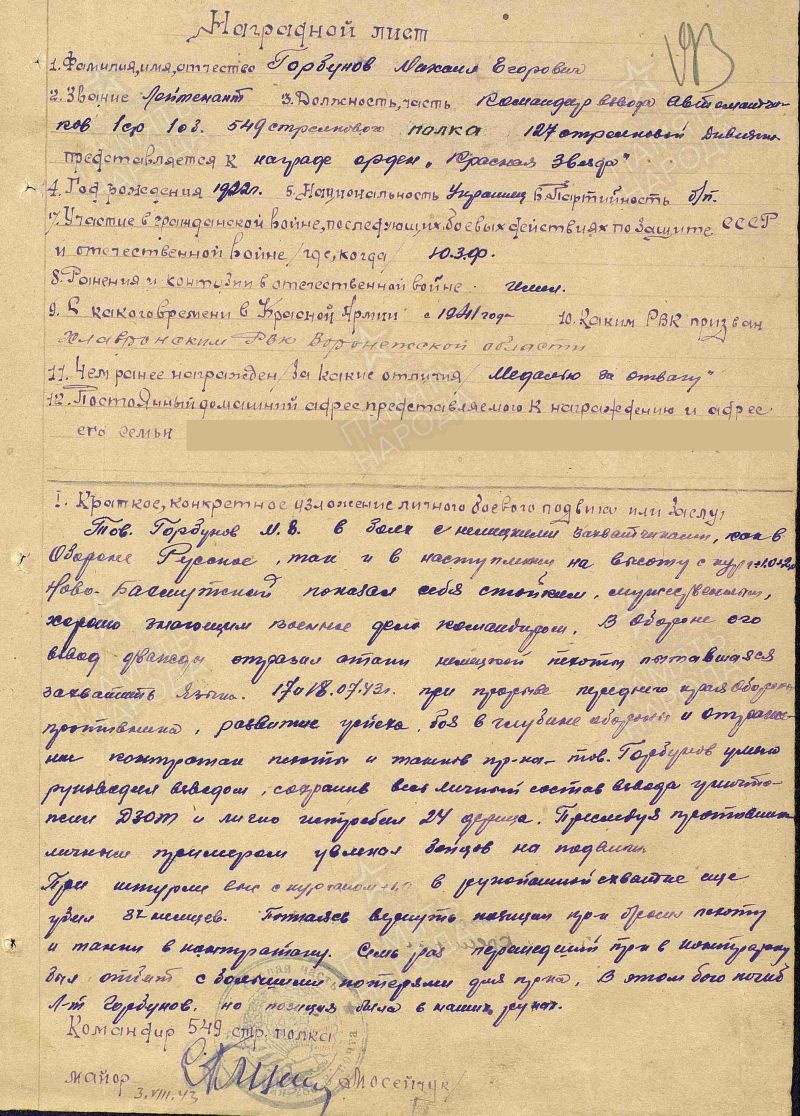 Наградной лист
193
1. Фамилия, имя, отчество Горбунов Михаил Егорович
2. Звание Лейтенант 3. Должность, часть Командир взвода автоматчи-
ков 1ср 1сб. 549 стрелкового полка 127 стрелковой дивизии
представляется к награде орден "Красная Звезда"
4. Год рождения 1922г. 5. Национальность Украинец 6. Партийность б/п.
7. Участие в гражданской войне, последующих боевых действиях по защите СССР
и отечественной войне /где, когда/ Ю.З.Ф.
8. Ранения и контузии в отечественной войне имел.
9. С какого времени в Красной Армии с 1941 года 10. Каким РВК призван
РВК Воронежской области
11. Чем ранее награжден /за какие отличия/ Медалью за отвагу"
12. Постоянный домашний адрес представляемого к награждению и адрес
его семьи
I. Краткое, конкретное изложение личного боевого подвига или заслуг
Тов. Горбунов М. в боях с немецкими захватчиками, как в
Обороне Русское, так и в наступлении на высоту с
Ново- показал себя стойким, мужественным,
хорошо знающим военное дело командиром. В обороне его
взвод дважды отразил атаки немецкой пехоты пытавшаяся
захватить языка. 17 и 18.07.43г. при прорыве переднего края обороны
противника, развитие успеха, боя в глубине обороны и отраже-
нии контратак пехоты и танков пр-ка- тов. Горбунов умело
руководил взводом, сохранив весь личный состав взвода уничто-
жил ДЗОТ и лично истребил 24 фрица. Преследуя противника
личным примером увлекал бойцов на подвиги
При штурме выс с курганом в рукопашной схватке еще
убил немцев. Пытаясь вернуть позиции пр-к бросил пехоту
и танки в контратаку. Семь раз перешедший пр-к в контратаку
был отбит с большими потерями для пр-ка. В этом бою погиб
Л-т Горбунов, но позиция была в наших руках.
Командир 549 стр. полка
майор /Мосейчук/
3.VIII.43
ПАМЯТЬ
НАРОДА